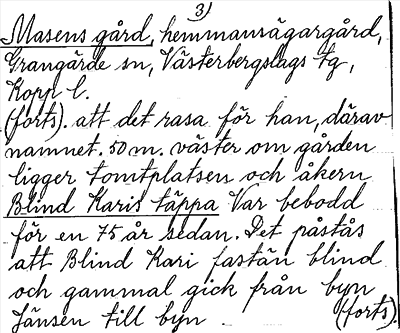 3)
Masens gård, hemmansägargård,
Grangärde sn, Västerbergslags tg,
Kopp l.
(forts). att det rasa för han, därav
namnet. 50 m. väster om gården
ligger tomtplatsen och åkern
Blind Karis täppa Var bebodd
för en 75 år sedan. Det påstås
att Blind Kari fastän blind
och gammal gick från byn
Jänsen till byn (forts).